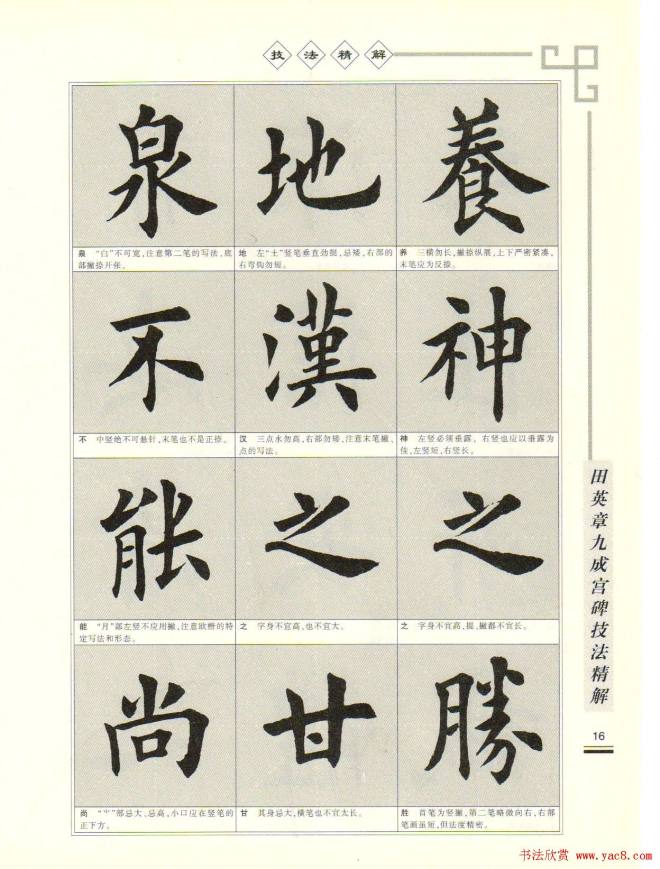 技法精解
泉 地 養
泉 “白”不可宽,注意第二笔的写法,底
部撇捺开张。
地 左“土”竖笔垂直劲挺,忌矮,右部的
右弯钩勿短。
养 三横勿长,撇捺纵展,上下严密紧凑,
末笔应为反捺。
不 漢 神
不 中竖绝不可悬针,末笔也不是正捺。
汉 三点水勿高,右部勿矮,注意末笔撇、
点的写法。
神 左竖必须垂露,右竖也应以垂露为
佳,左竖短,右竖长。
能 之 之
能 “月”部左竖不应用撇,注意欧楷的特
定写法和形态。
之 字身不宜高,也不宜大。
之 字身不宜高,提、撇都不宜长。
尚 甘 勝
尚 “⺌”部忌大、忌高,小口应在竖笔的
正下方。
甘 其身忌大,横笔也不宜太长。
胜 首笔为竖撇,第二笔略微向右,右部
笔画虽短,但法度精密。
田英章九成宫碑技法精解
16
书法欣赏 www.yac8.com